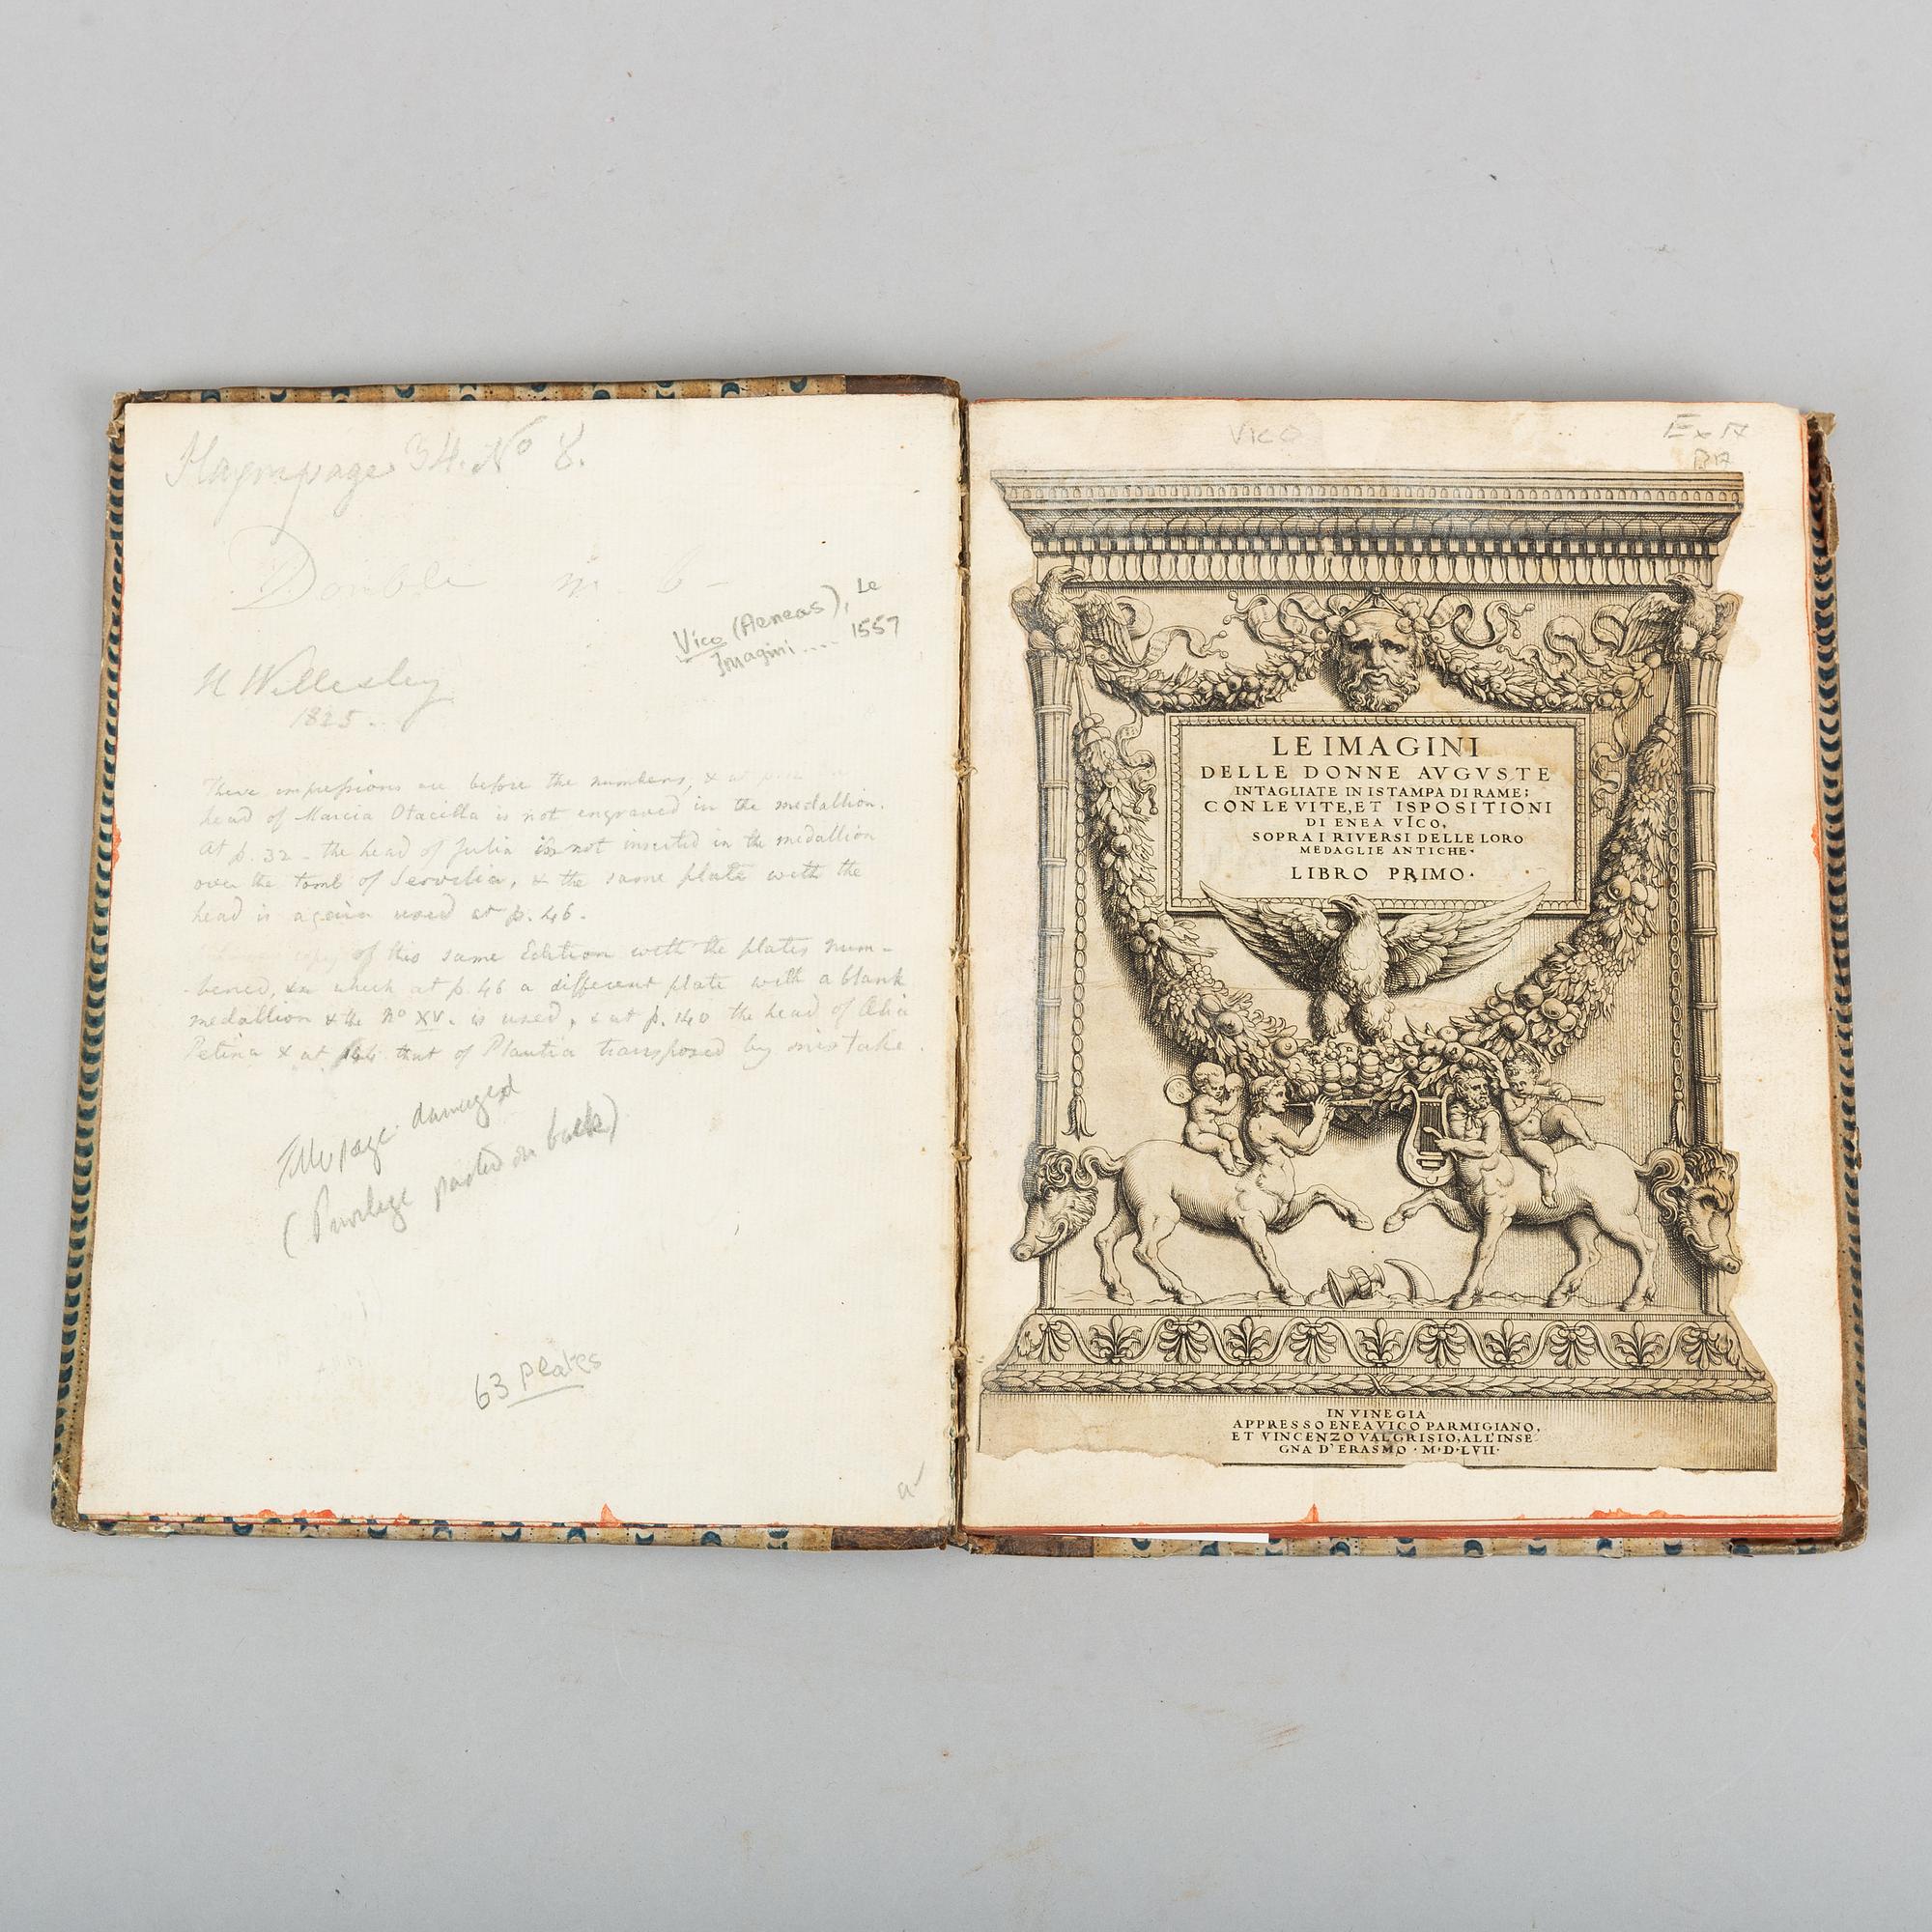 Haym page 34. No 8.
Double
Vico (Aeneas), Le
Imagini .... 1557
H Wellesley
1825.
These impressions are before the numbers, & at
head of Marcia Otacilla is not engraved in the medallion.
At p. 32 - the head of Julia is not inserted in the medallion
over the tomb of Servilia, & the same plate with the
head is again used at p. 46.
copy of this same Edition with the plates num-
-bered, in which at p. 46 a different plate with a blank
medallion & the no XV. is used, & at p. 140 the head of Ælia
Petina & at 144 that of Plautia transposed by mistake.
Title page damaged
(Privilege pasted on back)
63 plates
Vico
LE IMAGINI
DELLE DONNE AVGVSTE
INTAGLIATE IN ISTAMPA DI RAME;
CON LE VITE, ET ISPOSITIONI
DI ENEA VICO,
SOPRA I RIVERSI DELLE LORO
MEDAGLIE ANTICHE·
LIBRO PRIMO·
IN VINEGIA
APPRESSO ENEA VICO PARMIGIANO,
ET VINCENZO VALGRISIO, ALL'INSE-
GNA D'ERASMO · M·D·LVII·